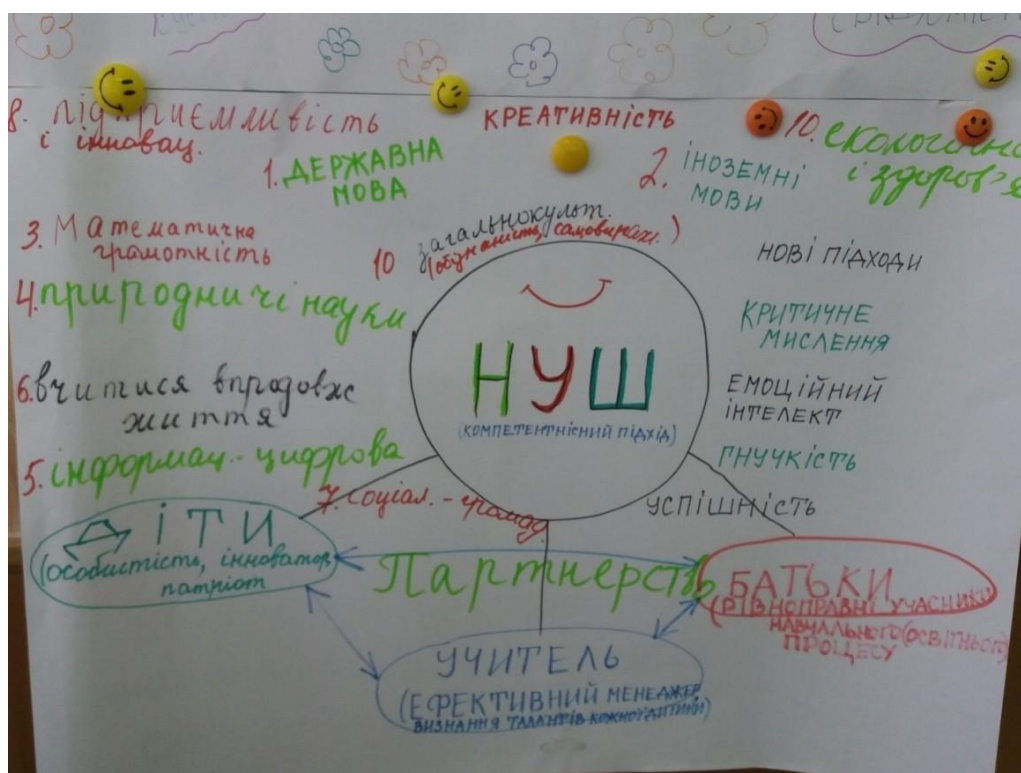 8. підприємливість
і інновац.
КРЕАТИВНІСТЬ
10. екологічна
і здоров'я
1. ДЕРЖАВНА
МОВА
2. ІНОЗЕМНІ
МОВИ
3. Математична
грамотність
10 загальнокульт.
(обізнаність, самовираж.)
НОВІ ПІДХОДИ
4. природничі науки
КРИТИЧНЕ
МИСЛЕННЯ
НУШ
(КОМПЕТЕНТНІСНИЙ ПІДХІД)
6. вчитися впродовж
життя
ЕМОЦІЙНИЙ
ІНТЕЛЕКТ
5. інформац.-цифрова
ГНУЧКІСТЬ
7. соціал.-громад.
УСПІШНІСТЬ
ДІТИ
(особистість, інноватор,
патріот
Партнерство
БАТЬКИ
(РІВНОПРАВНІ УЧАСНИКИ
НАВЧАЛЬНОГО (ОСВІТНЬОГО)
ПРОЦЕСУ
УЧИТЕЛЬ
(ЕФЕКТИВНИЙ МЕНЕДЖЕР,
ВИЗНАННЯ ТАЛАНТІВ КОЖНОЇ ДИТИНИ)